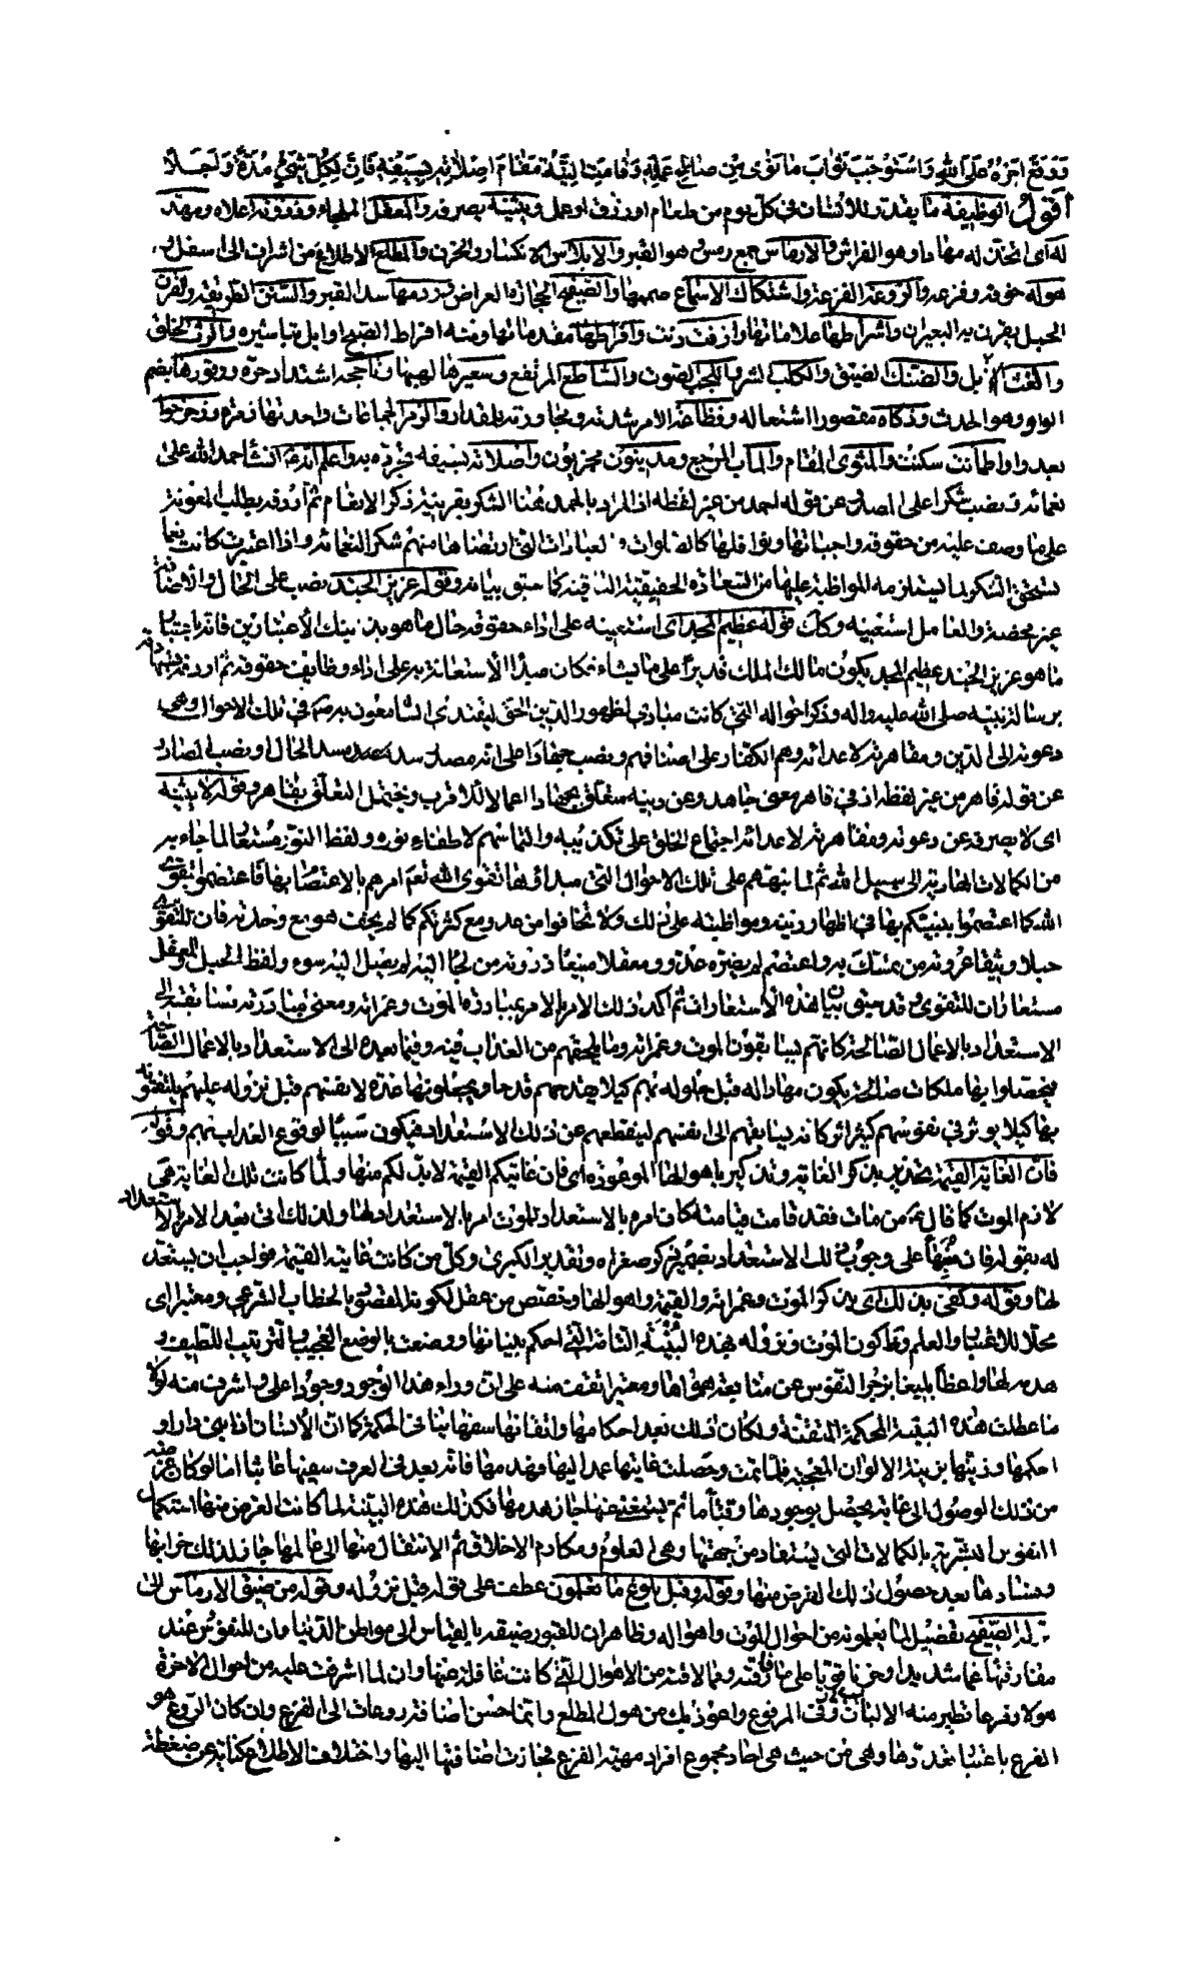 وَوَقَعَ اَجْرُهُ عَلَى اللهِ وَاسْتَوْجَبَ ثَوَابَ مَا نَوَى مِنْ صَالِحِ عَمَلِهِ وَقَامَتِ النِّيَّةُ مَقَامَ اِصْلَاتِهِ بِسَيْفِهِ فَاِنَّ لِكُلِّ شَيْءٍ مُدَّةً وَاَجَلًا
اقول الوظيفة ما يقدر للانسان في كل يوم من طعام او رزق او عمل ويثنيه يصرفه والمعقل الملجاء وذروته اعلاه ومهد
له اى اتخذ له مهادا وهو الفراش والارماس جمع رمس وهو القبر والابلاس الانكسار والحزن والمطلع الاطلاع من اشراف الى اسفل و
هوله خوفه وفزعه والروعة الفزعة واستكاك الاسماع صممها والصفيح الحجارة العراض وردمها سد القبر والسنن الطريقة والقرن
الحبل يقرن به البعيران واشراطها علاماتها وازفت دنت وافراطها مقدماتها ومنه افراط الصبح اوايل تباشيره والرث الخلق
والغث المهزول والضنك الضيق والكلب الشر واللجب الصوت والساطع المرتفع وسعيرها لهبها وتاجج اشتداد حره ووقودها بضم
الواو وهو الحدث وذكاه مقصورا اشتعاله وفظاعة الامر شدته ومجاوزته للمقدار والزمر الجماعات واحدتها زمرة وزحزحوا
بعدوا واطمانت سكنت والمثوى المقام والماب المرجع ومدينون مجزيون واصلاته بسيفه تجرده به واعلم انه انشا حمد الله على
نعمائه ونصب شكرا على المصدر عن قوله احمد من غير لفظه اذ المراد بالحمد هنا الشكر بقرينة ذكر الانعام ثم اردفه بطلب المعونة
على ما وصف عليه من حقوقه واجباتها ونوافلها كالصلوات والعبادات التي ارتضاها منهم شكرا لنعمائه واذا اعتبرت كانت نعما
تستحق الشكر لما يستلزمه المواظبة عليها من السعادة الحقيقية الباقية كما سبق بيانه وقوله عزيز الجند نصب على الحال والاضافة
غير محضة والعامل استعينه وكذلك قوله عظيم المجد اى استعينه على اداء حقوقه حال ما هو بذينك الاعتبارين فانه باعتبار
ما هو عزيز الجند عظيم المجد يكون مالك الملك قديرا على ما يشاء فكان مبدأ الاستعانة به على اداء وظايف حقوقه ثم اردفه بشهادة
برسالة نبيه صلى الله عليه واله وذكر احواله التي كانت مبادى لظهور الدين الحق ليقتدى السامعون به في تلك الاحوال وهى
دعوته الى الدين ومقاهرته لاعدائه وهم الكفار على اصنافهم ونصب جهادا على انه مصدر سد مسد الحال او نصب المصادر
عن قوله قاهر من غير لفظه اذ في قاهر معنى جاهد وعن دينه متعلق بجهادا اعمالا للاقرب ويحتمل التعلق بقاهر وقوله لا يثنيه
اى لا يصرفه عن دعوته ومقاهرته لاعدائه اجتماع الخلق على تكذيبه والتماسهم لاطفاء نوره ولفظ النور مستعار لما جاء به
من الكمالات الهادية الى سبيل الله ثم لما نبههم على تلك الاحوال التي مبداؤها تقوى الله تعم امرهم بالاعتصام بها فاعتصموا بتقوى
الله كما اعتصموا بنبيتكم بها في اظهار دينه ومواظبته على ذلك ولا تخافوا من عدو مع كثرتكم كما لم يخف هو مع وحدته فان للتقوى
حبلا وثيقا عروته من تمسك به واعتصم لم يضره عدو ومعقلا منيعا ذروته من لجا اليه لم يصل اليه سوء ولفظ الحبل والمعقل
مستعاران للتقوى وقد سبق بيان هذه الاستعارات ثم اكد ذلك الامر بالامر بمبادرة الموت وغمراته ومعنى مبادرته مسابقته الى
الاستعداد بالاعمال الصالحة كانهم يسابقون الموت وغمراته وما يلحقهم من العذاب فيه وفيما بعده الى الاستعداد بالاعمال الصالحة
فيحصلوا بها ملكات صالحة يكون مهادا له قبل حلوله بهم كيلا يقدحهم قدحا ويجعلونها عدة لانفسهم قبل نزوله عليهم يلتقونه
بها كيلا يوثر في نفوسهم كثير اثر كانه يسابقهم الى انفسهم ليقطعهم عن ذلك الاستعداد فيكون سببا لوقوع العذاب بهم وقوله
فان الغاية القيمة تحذير بذكر الغاية وتذكير باهوالها الموعودة اى فان غايتكم القيمة لابد لكم منها ولما كانت تلك الغاية هى
لازم الموت كما قال ع من مات فقد قامت قيامته كان امره بالاستعداد للموت امرا بالاستعداد لها ولذلك اتى بعد الامر بالاستعداد
له بقوله فان منبها على وجوب ذلك الاستعداد بضمير ذكر صغراه وتقدير الكبرى وكل من كانت غايته القيمة فواجب ان يستعد
لها وقوله وكفى بذلك اى بذكر الموت وغمراته والقيمة واهوالها وتخصيص من عقل لكونه المقصود بالخطاب الشرعى ومعتبرا اى
محلا للاعتبار والعلم وظ كون الموت ونزوله بهذه البنية التامة التي احكم بنيانها ووضعت بالوضع العجيب والترتيب اللطيف و
هدمه لها واعظا بليغا يزجر النفوس عن متابعة هواها ومعتبرا تقف منه على ان وراء هذا الوجود وجودا اعلى واشرف منه لولاه
ما عطلت هذه البنية المحكمة المتقنة ولكان ذلك بعد احكامها واتقانها سفها ينافى الحكمة كما ان الانسان اذا بنى دارا و
احكمها وزينها بزينة الالوان المعجبة فلما تمت وحصلت غايتها عمد اليها وهدمها فانه يعد في العرف سفيها عابثا اما لو كان غرضه
من ذلك الوصول الى غاية يحصل بوجودها وقتا ما ثم يستغنى عنها جاز هدمها فكذلك هذه البنية لما كانت الغرض منها استكمال
النفوس البشرية بالكمالات التي يستفاد من جهتها وهى العلوم ومكارم الاخلاق ثم الانتقال منها الى عالمها جاز لذلك خرابها
وفسادها بعد حصول ذلك الغرض منها وقوله وقبل بلوغ ما تعلمون عطف على قوله قبل نزوله وقوله من ضيق الارماس الى
قوله الصفيح تفصيل لما يعلمونه من احوال الموت واهواله وظاهر ان للقبور ضيقة بالقياس الى مواطن الدنيا وان للنفوس عند
مفارقتها غما شديدا وحزنا قويا على ما فارقته ومما لاقته من الاهوال التي كانت غافلة عنها وان لما اشرفت عليه من احوال الاخرة
هولا وفزعا تطير منه الالباب وفي المرفوع واعوذ بك من هول المطلع وانما حسن اضافة روعات الى الفزع وان كان الروع هو
الفزع باعتبار تعددها وهى من حيث هى احاد مجموع افراد مهية الفزع فجازت اضافتها اليها واختلاف الاضلاع كناية عن ضغطة